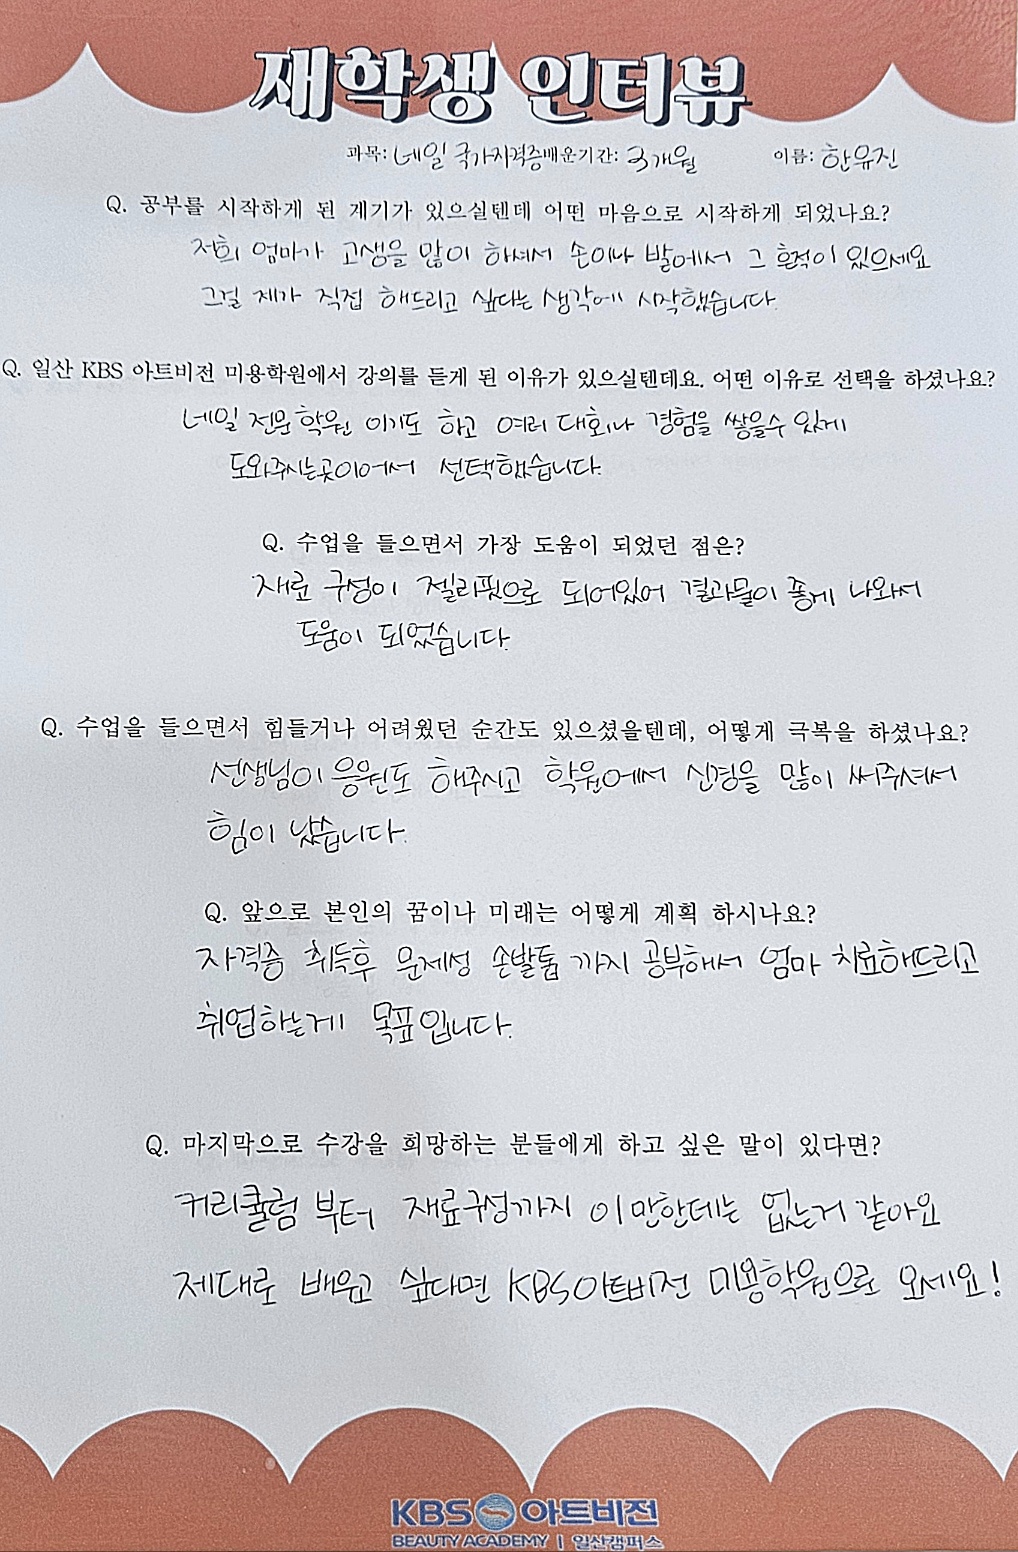 재학생 인터뷰
과목: 네일 국가자격증 배운기간: 3개월 이름: 한유진
Q. 공부를 시작하게 된 계기가 있으실텐데 어떤 마음으로 시작하게 되었나요?
저희 엄마가 고생을 많이 하셔서 손이나 발에서 그 흔적이 있으세요
그걸 제가 직접 해드리고 싶다는 생각에 시작했습니다.
Q. 일산 KBS 아트비전 미용학원에서 강의를 듣게 된 이유가 있으실텐데요. 어떤 이유로 선택을 하셨나요?
네일 전문 학원 이기도 하고 여러 대회나 경험을 쌓을수 있게
도와주시는곳이어서 선택했습니다.
Q. 수업을 들으면서 가장 도움이 되었던 점은?
재료 구성이 젤리핏으로 되어있어 결과물이 좋게 나와서
도움이 되었습니다.
Q. 수업을 들으면서 힘들거나 어려웠던 순간도 있으셨을텐데, 어떻게 극복을 하셨나요?
선생님이 응원도 해주시고 학원에서 신경을 많이 써주셔서
힘이 났습니다.
Q. 앞으로 본인의 꿈이나 미래는 어떻게 계획 하시나요?
자격증 취득후 문제성 손발톱 까지 공부해서 엄마 치료해드리고
취업하는게 목표입니다.
Q. 마지막으로 수강을 희망하는 분들에게 하고 싶은 말이 있다면?
커리큘럼 부터 재료구성까지 이만한데는 없는거 같아요
제대로 배우고 싶다면 KBS아트비전 미용학원으로 오세요!
KBS 아트비전
BEAUTY ACADEMY | 일산캠퍼스